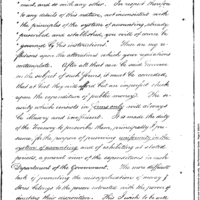 and, as with any other. In regard therefore
to any details of this nature, not inconsistent with
the principles of the system of accounting already
prescribed and established, you will of course be
governed by his instructions. These are my
upon the alterations which your
contemplate. After all that can be said
on the subject of such frauds, it must be conceded,
that at best they afford but an imperfect check
upon the expenditure of public money. The
which consists in forms only will always
be illusory and inefficient. It is made the duty
of the Treasury to prescribe them, principally, I
, for the purpose of preserving uniformity in the
system of accounting and of exhibiting at stated
periods, a general view of the expenditures in each
Department of the Government. The more difficult
task of preventing the misapplications of money
does belongs to the person entrusted with the power of
directing this expenditure. This I wish to be